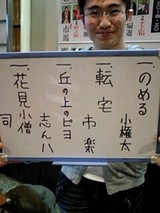 一、のめる
小権太
一、転宅
市楽
一、丘の上のピヨ
志ん八
一、花見小僧
司
市馬